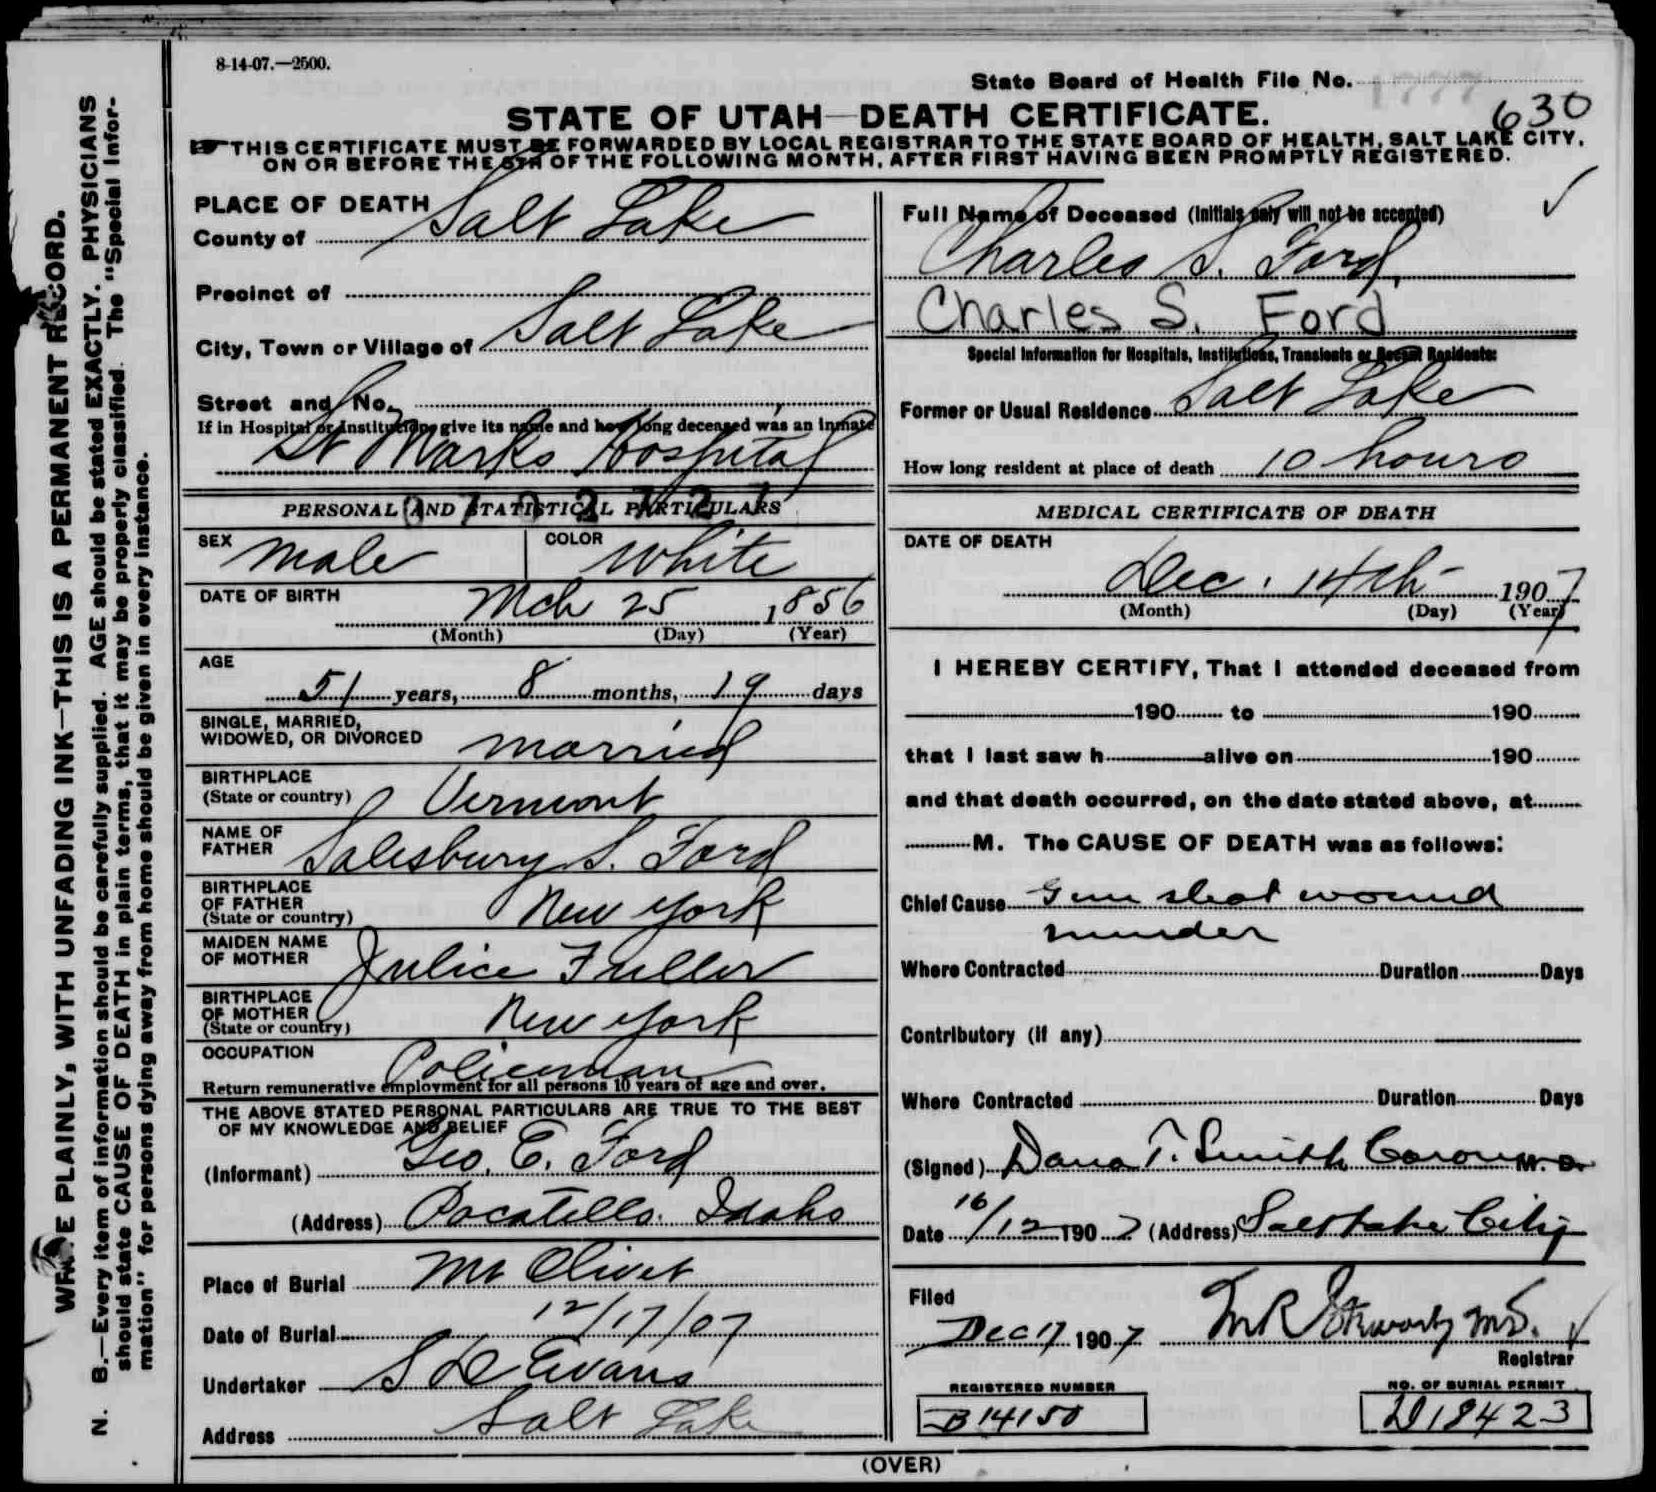 8-14-07.—2500.
State Board of Health File No. 1777
630
STATE OF UTAH—DEATH CERTIFICATE.
☞THIS CERTIFICATE MUST BE FORWARDED BY LOCAL REGISTRAR TO THE STATE BOARD OF HEALTH, SALT LAKE CITY,
ON OR BEFORE THE 5TH OF THE FOLLOWING MONTH, AFTER FIRST HAVING BEEN PROMPTLY REGISTERED.
WRITE PLAINLY, WITH UNFADING INK—THIS IS A PERMANENT RECORD.
N. B.—Every item of information should be carefully supplied. AGE should be stated EXACTLY. PHYSICIANS
should state CAUSE OF DEATH in plain terms, that it may be properly classified. The "Special Infor-
mation" for persons dying away from home should be given in every instance.
PLACE OF DEATH
County of Salt Lake
Precinct of
City, Town or Village of Salt Lake
Street and No.
If in Hospital or Institution, give its name and how long deceased was an inmate
St Marks Hospital
PERSONAL AND STATISTICAL PARTICULARS
SEX Male COLOR White
DATE OF BIRTH Mch 25 1856
(Month) (Day) (Year)
AGE
51 years, 8 months, 19 days
SINGLE, MARRIED,
WIDOWED, OR DIVORCED married
BIRTHPLACE
(State or country) Vermont
NAME OF
FATHER Salesbury S. Ford
BIRTHPLACE
OF FATHER
(State or country) New York
MAIDEN NAME
OF MOTHER Julice Fuller
BIRTHPLACE
OF MOTHER
(State or country) New York
OCCUPATION Policeman
Return remunerative employment for all persons 10 years of age and over.
THE ABOVE STATED PERSONAL PARTICULARS ARE TRUE TO THE BEST
OF MY KNOWLEDGE AND BELIEF
(Informant) Geo. E. Ford
(Address) Pocatello. Idaho
Place of Burial Mt Olivet
Date of Burial 12/17/07
Undertaker S D Evans
Address Salt Lake
Full Name of Deceased (Initials only will not be accepted)
Charles S. Ford,
Charles S. Ford
Special Information for Hospitals, Institutions, Transients or Recent Residents:
Former or Usual Residence Salt Lake
How long resident at place of death 10 hours
MEDICAL CERTIFICATE OF DEATH
DATE OF DEATH
Dec. 14th 1907
(Month) (Day) (Year)
I HEREBY CERTIFY, That I attended deceased from
190 to 190
that I last saw h alive on 190
and that death occurred, on the date stated above, at
M. The CAUSE OF DEATH was as follows:
Chief Cause Gun shot wound
murder
Where Contracted Duration Days
Contributory (if any)
Where Contracted Duration Days
(Signed) Dana T. Smith Coroner M. D.
Date 16/12 1907 (Address) Salt Lake City
Filed
Dec 17 1907 M.D.
Registrar
REGISTERED NUMBER
B14150
NO. OF BURIAL PERMIT
D18423
(OVER)